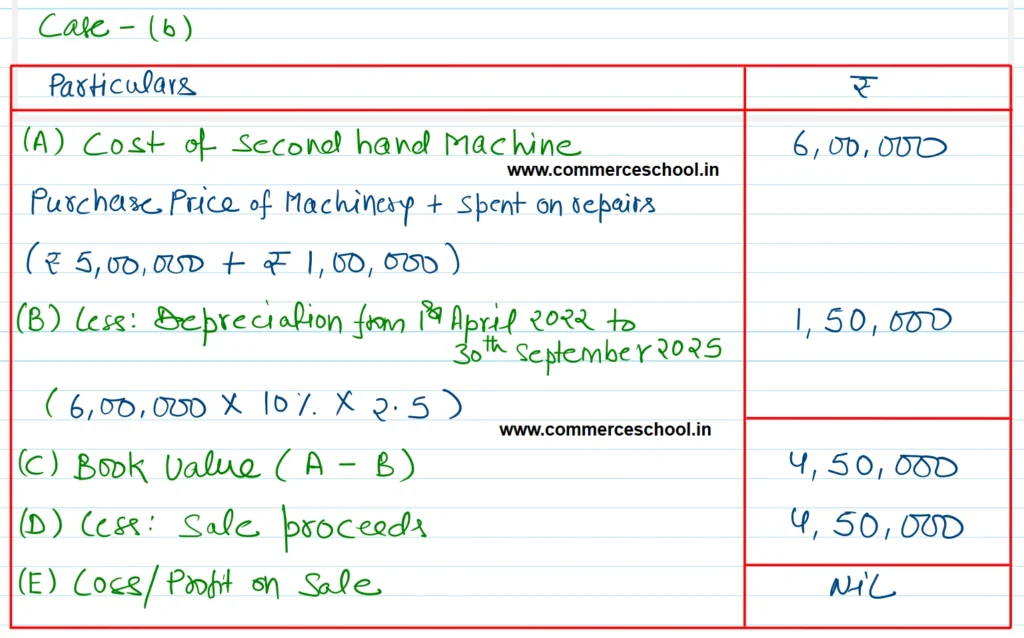 Case - (b)
Particulars ₹
(A) Cost of Second hand Machine 6,00,000
www.commerceschool.in
Purchase Price of Machinery + Spent on repairs
(₹ 5,00,000 + ₹ 1,00,000)
(B) Less: Depreciation from 1st April 2022 to 1,50,000
30th September 2025
(6,00,000 × 10% × 2.5)
www.commerceschool.in
(C) Book Value (A - B) 4,50,000
(D) Less: Sale proceeds 4,50,000
(E) Loss/Profit on Sale Nil